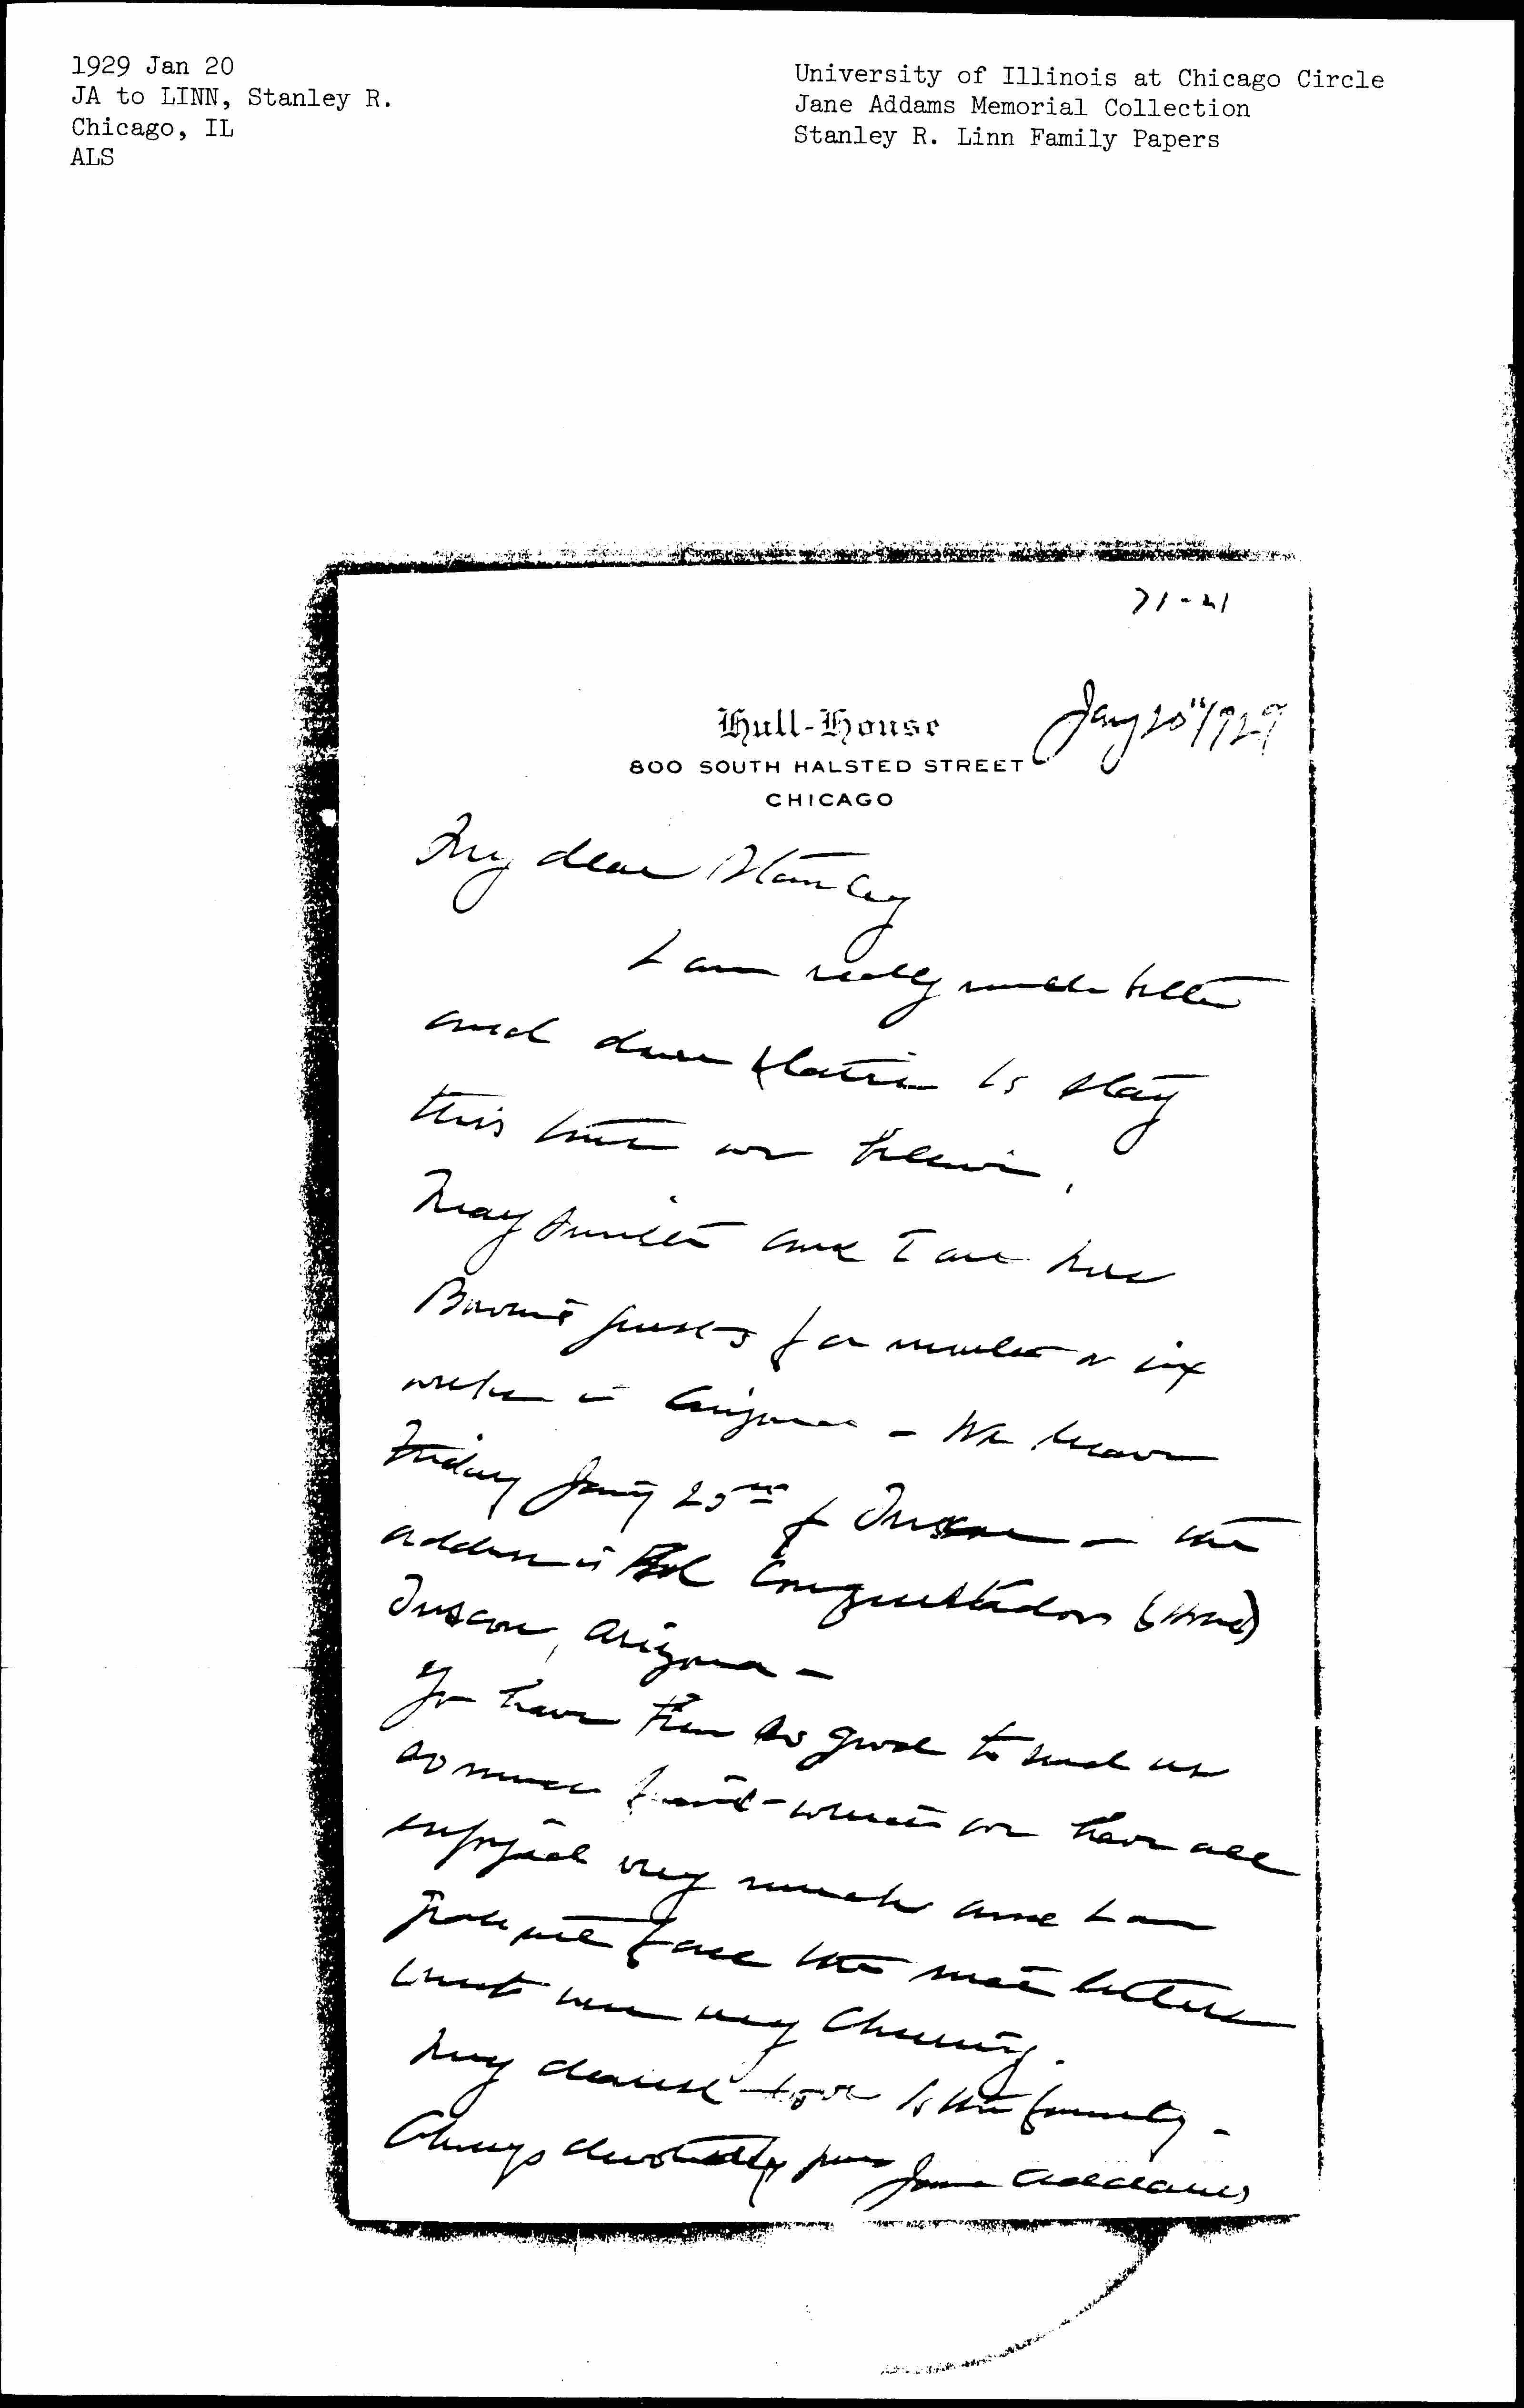 1929 Jan 20
JA to LINN, Stanley R.
Chicago, IL
ALS
University of Illinois at Chicago Circle
Jane Addams Memorial Collection
Stanley R. Linn Family Papers
71-21
Hull-House
Jany 20" 1929
800 SOUTH HALSTED STREET
CHICAGO
My dear Stanley
I am really much better
and down stairs to stay
this time we believe.
Mary Smith and I are
Bowen's guests for month or six
weeks in Arizona - We leave
Friday Jany 25" for Tucson - the
address is El Conquistador (Hotel)
Tucson, Arizona -
You have been so good to send us
so much fruit - which we have all
enjoyed very much and I am
grateful for all the nice letters
which were very cheering.
My dearest love to the family -
Always devotedly yours Jane Addams